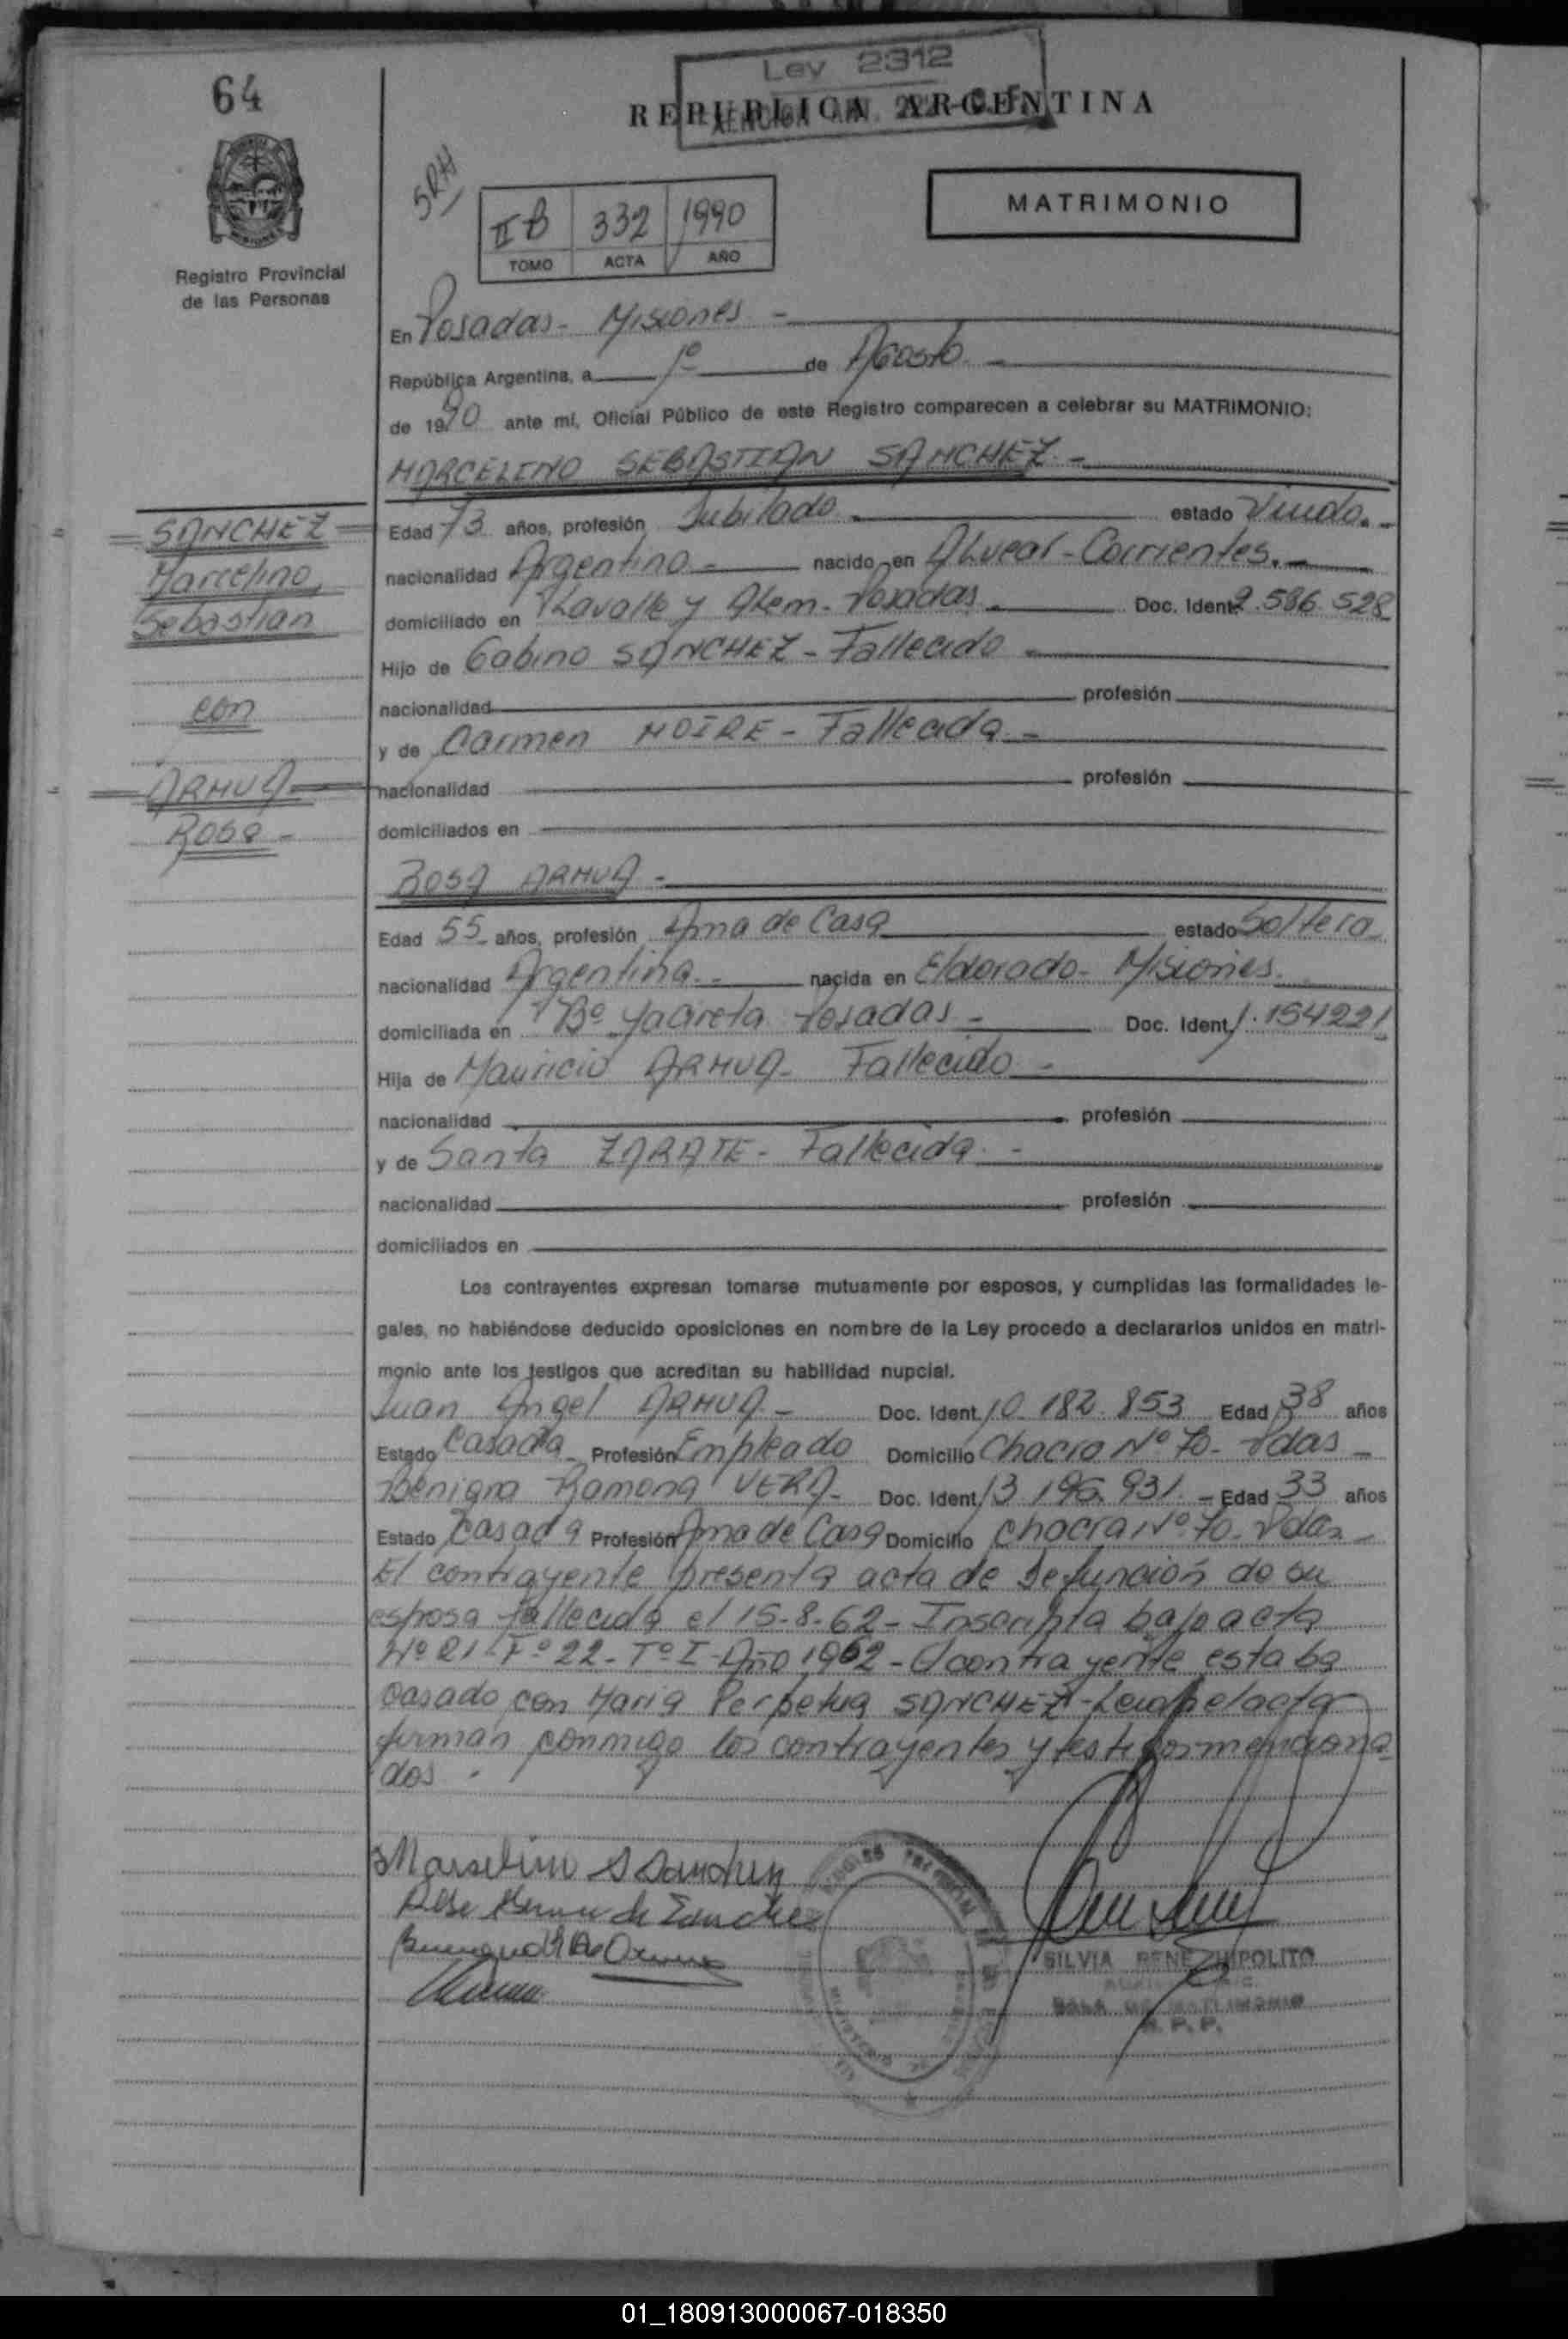 64
Ley 2312
REPUBLICA ARGENTINA
MATRIMONIO
SRH
II B 332 1990
TOMO ACTA AÑO
Registro Provincial
de las Personas
En Posadas - Misiones -
República Argentina, a 1º de Agosto -
de 1990 ante mí, Oficial Público de este Registro comparecen a celebrar su MATRIMONIO:
MARCELINO SEBASTIAN SANCHEZ -
SANCHEZ
Marcelino
Sebastian
con
ARMUA
Rosa -
Edad 73 años, profesión Jubilado estado Viudo. -
nacionalidad Argentino - nacido en Alvear - Corrientes. -
domiciliado en Lavalle y Alem - Posadas - Doc. Ident. 2.586.528
Hijo de Gabino SANCHEZ - Fallecido -
nacionalidad profesión
y de Carmen MOIRE - Fallecida -
nacionalidad profesión
domiciliados en
ROSA ARMUA -
Edad 55 años, profesión Ama de Casa estado Soltera
nacionalidad Argentina - nacida en Eldorado - Misiones
domiciliada en Bº Yacireta Posadas - Doc. Ident. 1.154221
Hija de Mauricio ARMUA - Fallecido -
nacionalidad profesión
y de Santa ZARATE - Fallecida. -
nacionalidad profesión
domiciliados en
Los contrayentes expresan tomarse mutuamente por esposos, y cumplidas las formalidades le-
gales, no habiéndose deducido oposiciones en nombre de la Ley procedo a declararlos unidos en matri-
monio ante los testigos que acreditan su habilidad nupcial.
Juan Angel ARMUA - Doc. Ident. 10.182.853 Edad 38 años
Estado Casado Profesión Empleado Domicilio Chacra Nº 70 - Pdas -
Benigna Ramona VERA - Doc. Ident. 13.196.931 - Edad 33 años
Estado Casada Profesión Ama de Casa Domicilio Chacra Nº 70 - Pdas -
El contrayente presenta acta de defunción de su
esposa fallecida el 15-8-62 - Inscripta bajo acta
Nº 21 - Fº 22 - Tº I - Año 1962 - El contrayente estaba
casado con Maria Perpetua SANCHEZ - Leida el acta
firman conmigo los contrayentes y testigos menciona
dos.
Marselino S Sanchez
Rosa Armua de Sanchez
SILVIA RENE HIPOLITO
SALA DE MATRIMONIO
R. P. P.
01_180913000067-018350